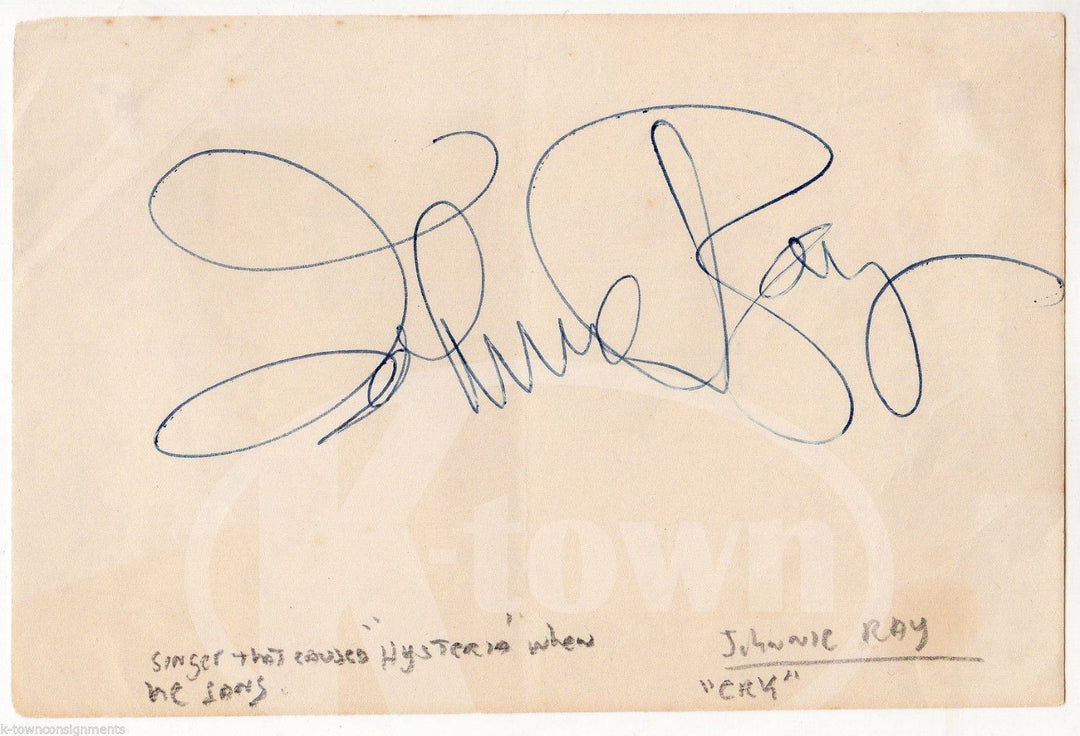 Johnnie Ray
K-town
singer that caused "Hysteria" when
he sang.
Johnnie RAY
"CRY"
k-townconsignments